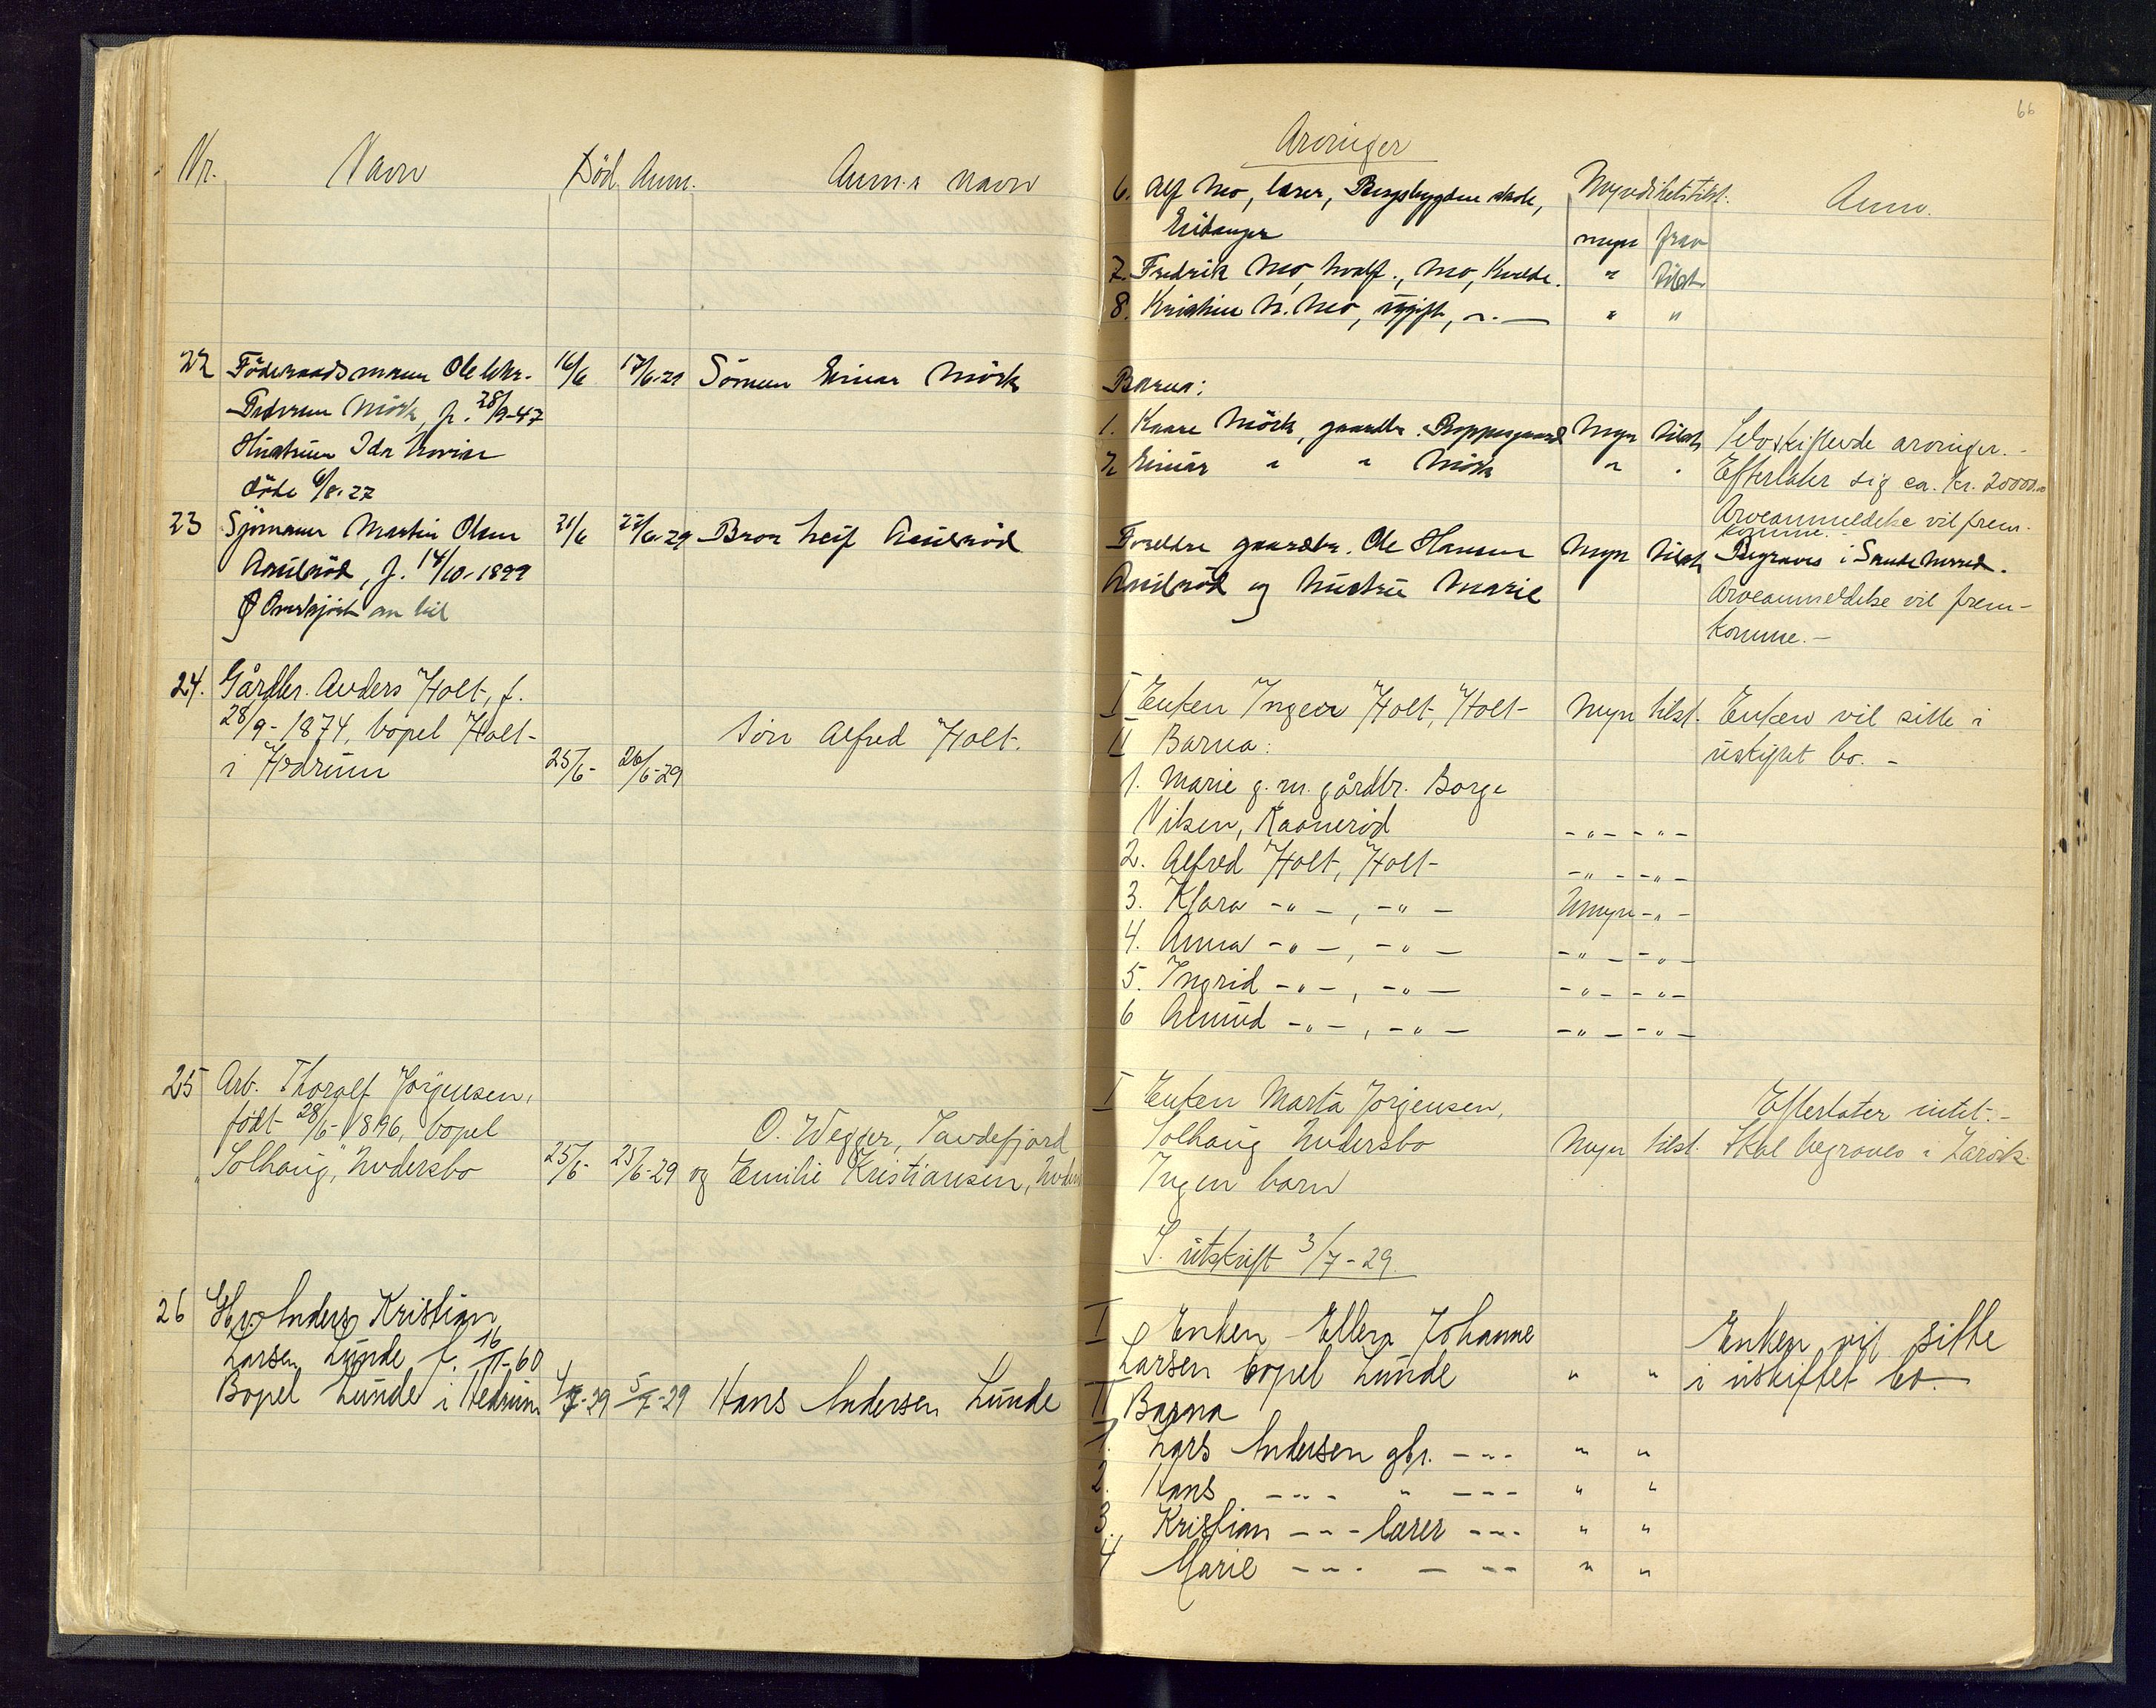 Nr. Navn Död Anm. Anm.s navn
22 Föderaadsmann Ole Chr. 16/6 17/6-29 Sönnen Einar Mörk
Pedersen Mörk, f. 28/9-47
Hustruen Ida
döde 6/8-27
23 Sjömann Martin Olsen 21/6 22/6-29 Bror Leif Amilröd
Amilröd, f. 14/10-1899
24. Gårdbr. Anders Holt, f.
28/9-1874, bopel Holt Sön Alfred Holt.
i Hedrum 25/6- 26/6-29
25 Arb. Thoralf Jörgensen,
født 28/6-1896, bopel O. Wegger, Sandefjord
"Solhaug", Andersbo 25/6- 25/6-29 og Emilie Kristiansen,
26 Gbr. Anders Kristian
Larsen Lunde f. 16/11-60
Bopel Lunde i Hedrum 4/7-29 5/7-29 Hans Andersen Lunde
66
Arvinger
6. Alf Mo, lærer, Bergsbygden skole, Myndihetstilst. Anm.
myn frav
7. Fredrik Mo, hvalf., Mo, Kvelde. " tilst.
8. Kristine M. Mo, ugift, - " - " "
Barna:
1. Kaare Mörk, gaardbr. Roppesgaard Myn tilst. Selvskiftende arvinger. -
2 Einar " " Mörk " " Efterlater sig ca. kr. 20000.00
Arveanmeldelse vil frem-
komme. -
Foreldre gaardbr. Ole Hansen Myn tilst. Begraves i Sandeherred.
Amilröd og hustru Marie Arveanmeldelse vil frem-
komme. -
I Enken Inger Holt, Holt Myn tilst. Enken vil sitte i
II Barna: uskiftet bo. -
1. Marie g. m. gårdbr. Borge
Nilsen, Kaaneröd - " - - " -
2. Alfred Holt, Holt - " - - " -
3. Klara - " -, - " - Umyn - " -
4. Anna - " -, - " - - " - - " -
5. Ingrid - " -, - " - - " - - " -
6 Amund - " -, - " - - " - - " -
I Enken Marta Jörgensen, Efterlater intet. -
Solhaug Andersbo Myn tilst. Skal begraves i Larvik
Ingen barn
S. utskrift 3/7-29.
I Enken Ellen Johanne Enken vil sitte
Larsen bopel Lunde " " i uskiftet bo.
II Barna
1. Lars Andersen gbr. - " - " "
2. Hans - " - " - " - " "
3. Kristian - " - lærer - " - " "
4 Marie - " - - - " - " "